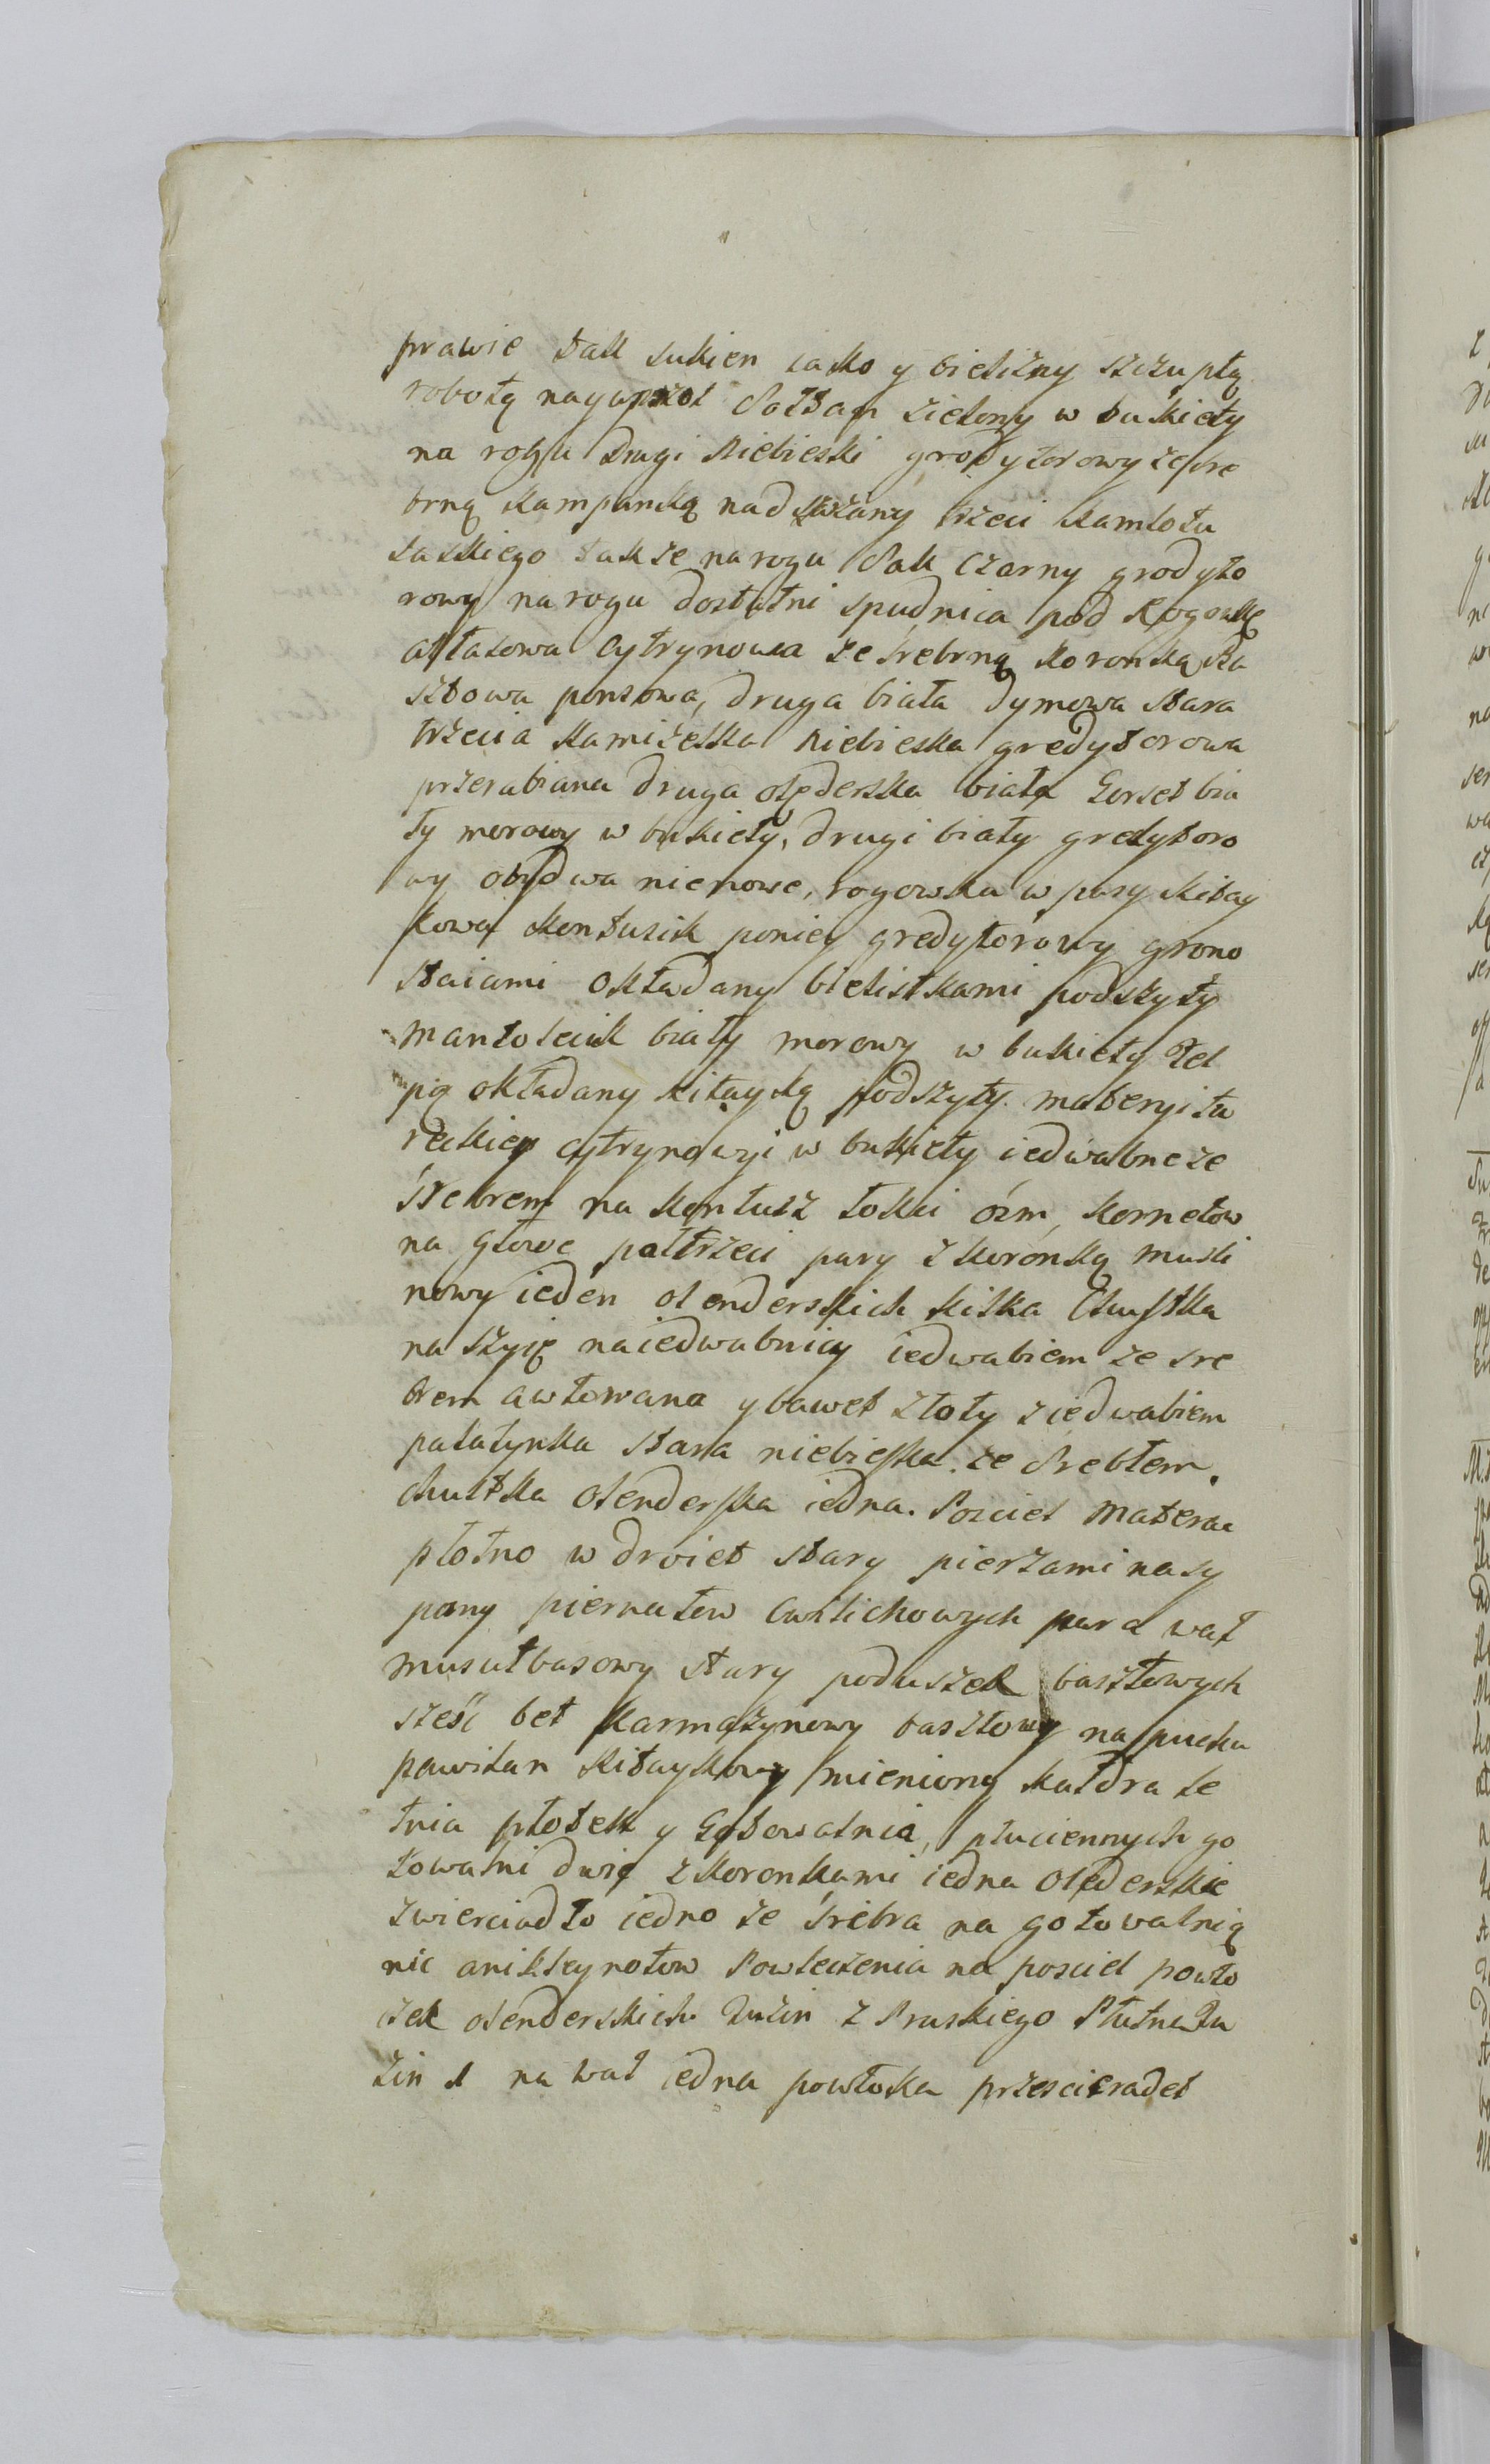 prawie tak sukien iako y bielizny szczupłą
robotą naywprzod Sałsan zielony w bukiety
na rogu drugi Niebieski grodytorowy ze sre
brną kampanką nadskazany trzeci kamlotu
saskiego takze na rogu Sak czarny grodyto
rowy na rogu dostatni spudnica pod Rogowkę
atłasowa Cytrynowa ze śrebrną koronką Ka
sztowa ponsowa, druga biała dymowa stara
trzecia kamizelka Niebieska gredytorowa
przerabiana druga olęderska biała Gorset bia
ły morowy w bukiety, drugi biały gredytoro
wy obydwa nienowe, rogowka w pasy kitay
kowa kontusik poniey gredytorowy grono
staiami okładany bielistkami podszyty
mantolecik biały morowy w bukiety Peł
pą okładany kitayką podszyty. materyi tu
reckiey cytrynowyi w bukiety iedwabne ze
śrebrem na kontusz łokci ośm, kornetow
na głowe pałtrzeci pary z koronką musli
nowy ieden olenderskich kilka Chustka
na szyię naiedwabnicy iedwabiem ze sre
brem awtowana y bawet złoty z iedwabiem
palatynka stara niebieska. ze srebłem.
chustka olenderska iedna. Posciel Materac
płotno w droiet stary pierzami nasy
pany piernatow Cwilichowych para wał
musułbasowy stary poduszek basztowych
sześć bet karmazynowy basztowy na puchu
pawilan kitaykowy mieniony kałdra le
tnia płotek y Gotowalnia, płuciennych go
towalni dwie z koronkami iedna olęderskie
zwierciadło iedno ze śrebra na gotowalnią
nic ani Powleczenia na posciel powło
czek olenderskich Tuzin z Pruskiego Płutna Tu
zin 1 na wał iedna powłoka przescieradeł